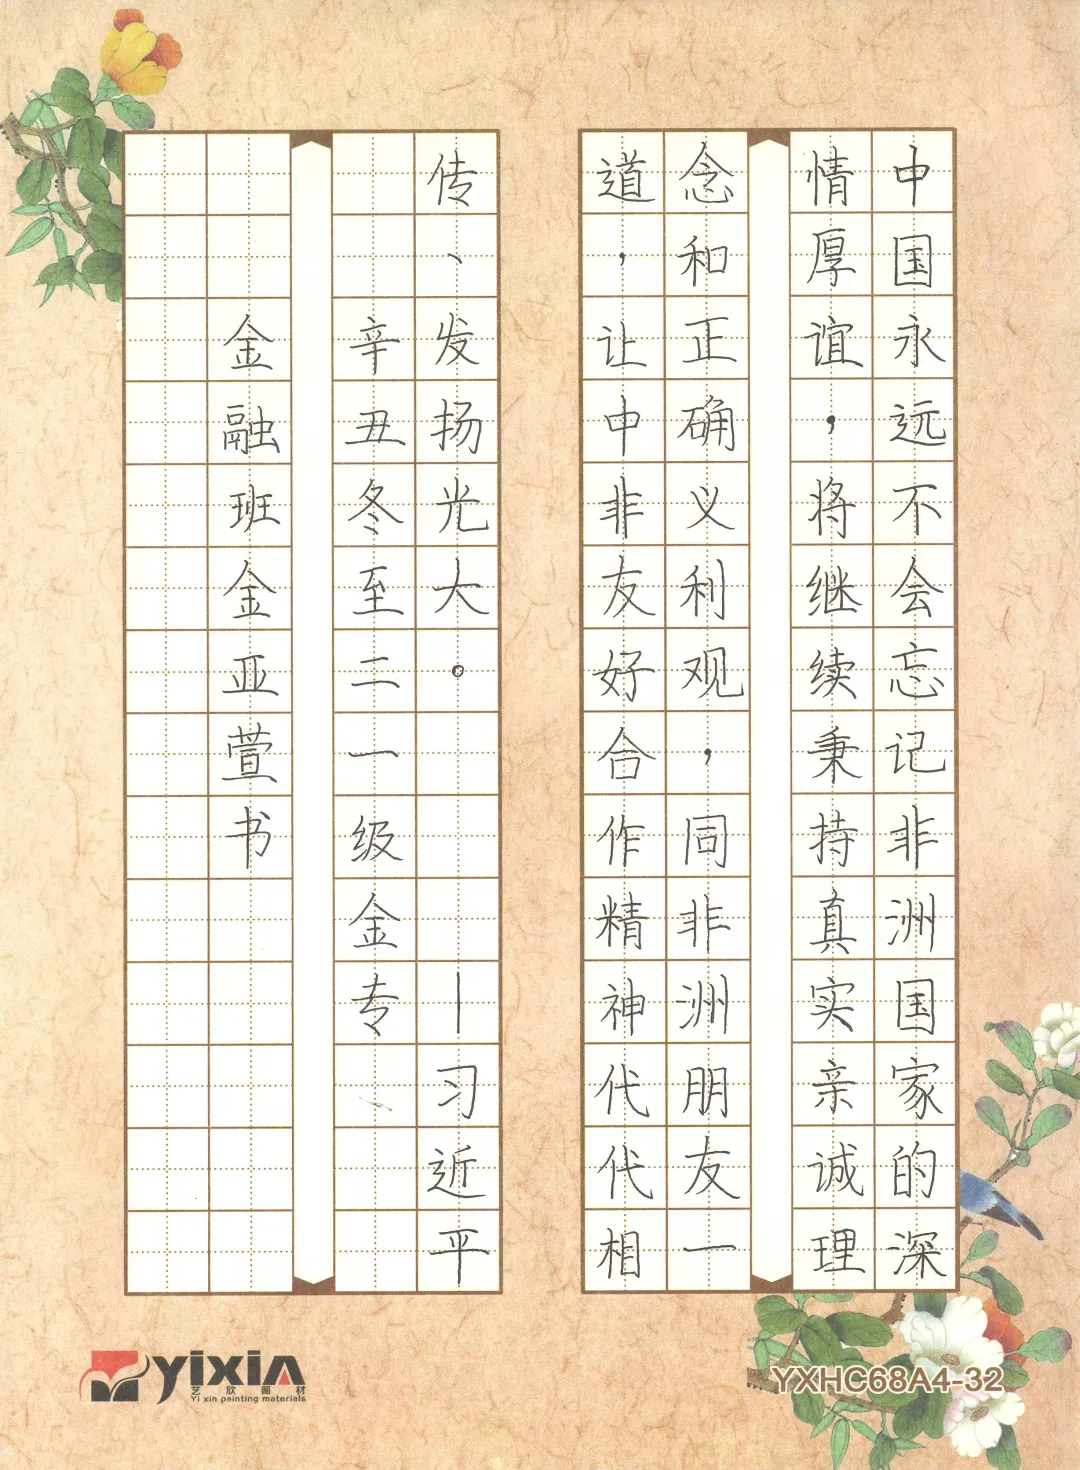 中国永远不会忘记非洲国家的深
情厚谊，将继续秉持真实亲诚理
念和正确义利观，同非洲朋友一
道，让中非友好合作精神代代相
传、发扬光大。—习近平
辛丑冬至二一级金专
金融班金亚萱书
yixin
艺欣画材
Yi xin painting materials
YXHC68A4-32